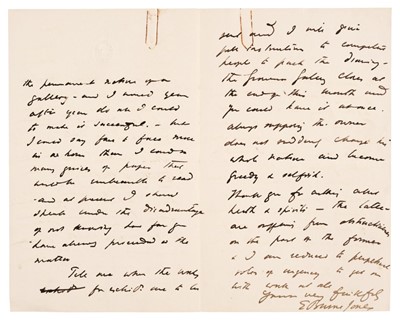 the permanent nature of a
gallery - and I would year
after year do all I could
to make it successful. - but
I could say face to face more
in an hour than I could in
many quires of paper that
would be unbearable to read
- and at present I should
speak under the disadvantage
of not knowing how far you
have already proceeded in the
matter
Tell me when the
for exhibit are to be
sent and I will give
full instructions to competent
people to pack the drawing -
the Grosvenor Gallery closes at
the end of this month and
you could have it at once.
always supposing the owner
does not suddenly change his
whole nature and become
greedy & selfish.
Thank you for asking about
health & spirits - the latter
are suffering from obstructions
on the part of the former
& I am reduced to perpetual
of urgency to get on
with work at all
Yours very faithfully
E Burne Jones